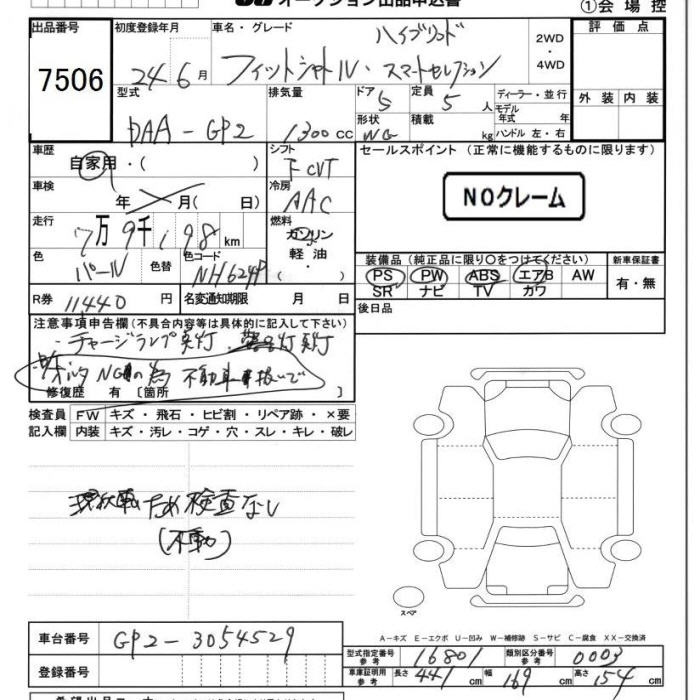 オークション出品申込書
①会場控
出品番号 初度登録年月 車名・グレード ハイブリッド 2WD ・ 4WD 評価点
7506 24年6月 フィットシャトル・スマートセレクション
外装 内装
型式 排気量 ドア 5 定員 5人 ディーラー・並行
DAA-GP2 1300cc 形状 WG 積載 kg モデル年式 年
ハンドル 左・右
車歴 シフト セールスポイント (正常に機能するものに限ります)
自家用・( ) FCVT
車検 冷房 NOクレーム
年 月( 日) AAC
走行 燃料
7万9千198km ガソリン
色 色替 色コード 軽油 装備品(純正品に限り○をつけてください) 新車保証書
パール NH624P ( ) PS PW ABS エアB AW 有・無
SR ナビ TV カワ
R券 11440円 名変通知期限 月 日 後日品
注意事項申告欄(不具合内容等は具体的に記入して下さい)
・チャージランプ点灯
NGの為 不動車扱いで
修復歴 有 〔箇所 〕
検査員 FW キズ・飛石・ヒビ割・リペア跡・×要
記入欄 内装 キズ・汚レ・コゲ・穴・スレ・キレ・破レ
現状車のため検査なし
(不動)
スペア
A-キズ E-エクボ U-凹み W-補修跡 S-サビ C-腐食 XX-交換済
車台番号 GP2-3054529 型式指定番号 参考 16801 類別区分番号 参考 0003
登録番号 車庫証明用 参考 長さ 441cm 幅 169cm 高さ 154cm